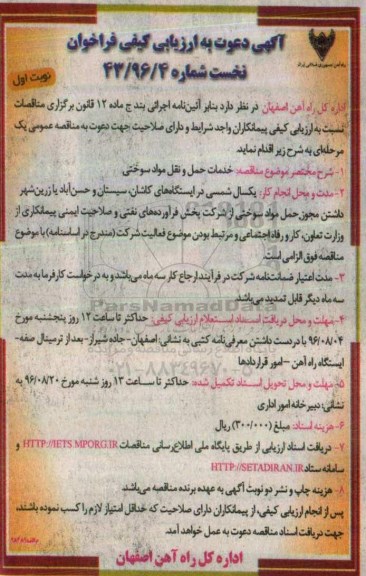 آگهی دعوت به ارزیابی کیفی فراخوان
نخست شماره ۴۳/۹۶/۴
نوبت اول
اداره کل راه آهن اصفهان در نظر دارد بنابر آئین‌نامه اجرائی بند ج ماده ۱۲ قانون برگزاری مناقصات
نسبت به ارزیابی کیفی پیمانکاران واجد شرایط و دارای صلاحیت جهت دعوت به مناقصه عمومی یک
مرحله‌ای به شرح زیر اقدام نماید.
۱- شرح مختصر موضوع مناقصه: خدمات حمل و نقل مواد سوختی
۲- مدت و محل انجام کار: یکسال شمسی در ایستگاههای کاشان، سیستان و حسن‌آباد یا زرین‌شهر
داشتن مجوز حمل مواد سوختی از شرکت پخش فرآورده‌های نفتی و صلاحیت ایمنی پیمانکاری از
وزارت تعاون، کار و رفاه اجتماعی و مرتبط بودن موضوع فعالیت شرکت (مندرج در اساسنامه) با موضوع
مناقصه فوق الزامی است.
۳- مدت اعتبار ضمانت‌نامه شرکت در فرآیند ارجاع کار سه ماه می‌باشد و به درخواست کارفرما به مدت
سه ماه دیگر قابل تمدید می‌باشد.
ParsNamadData
۴- مهلت و محل دریافت اسناد استعلام ارزیابی کیفی: حداکثر تا ساعت ۱۲ روز پنجشنبه مورخ
۹۶/۰۸/۰۴ با در دست داشتن معرفی‌نامه کتبی به نشانی: اصفهان- جاده شیراز- بعد از ترمینال صفه-
ایستگاه راه آهن -امور قراردادها
۰۲۱-۸۸۳۴۹۶۷۰-۵
۵- مهلت و محل تحویل اسناد تکمیل شده: حداکثر تا ساعت ۱۳ روز شنبه مورخ ۹۶/۰۸/۲۰ به
نشانی: دبیرخانه امور اداری
۶- هزینه اسناد: مبلغ (۳۰۰/۰۰۰) ریال
۷- دریافت اسناد ارزیابی از طریق پایگاه ملی اطلاع‌رسانی مناقصات HTTP://IETS MPORG.IR و
سامانه ستاد HTTP://SETADIRAN.IR
۸- هزینه چاپ و نشر دو نوبت آگهی به عهده برنده مناقصه می‌باشد.
پس از انجام ارزیابی کیفی، از پیمانکاران دارای صلاحیت که حداقل امتیاز لازم را کسب نموده باشند،
جهت دریافت اسناد مناقصه دعوت به عمل خواهد آمد.
اداره کل راه آهن اصفهان